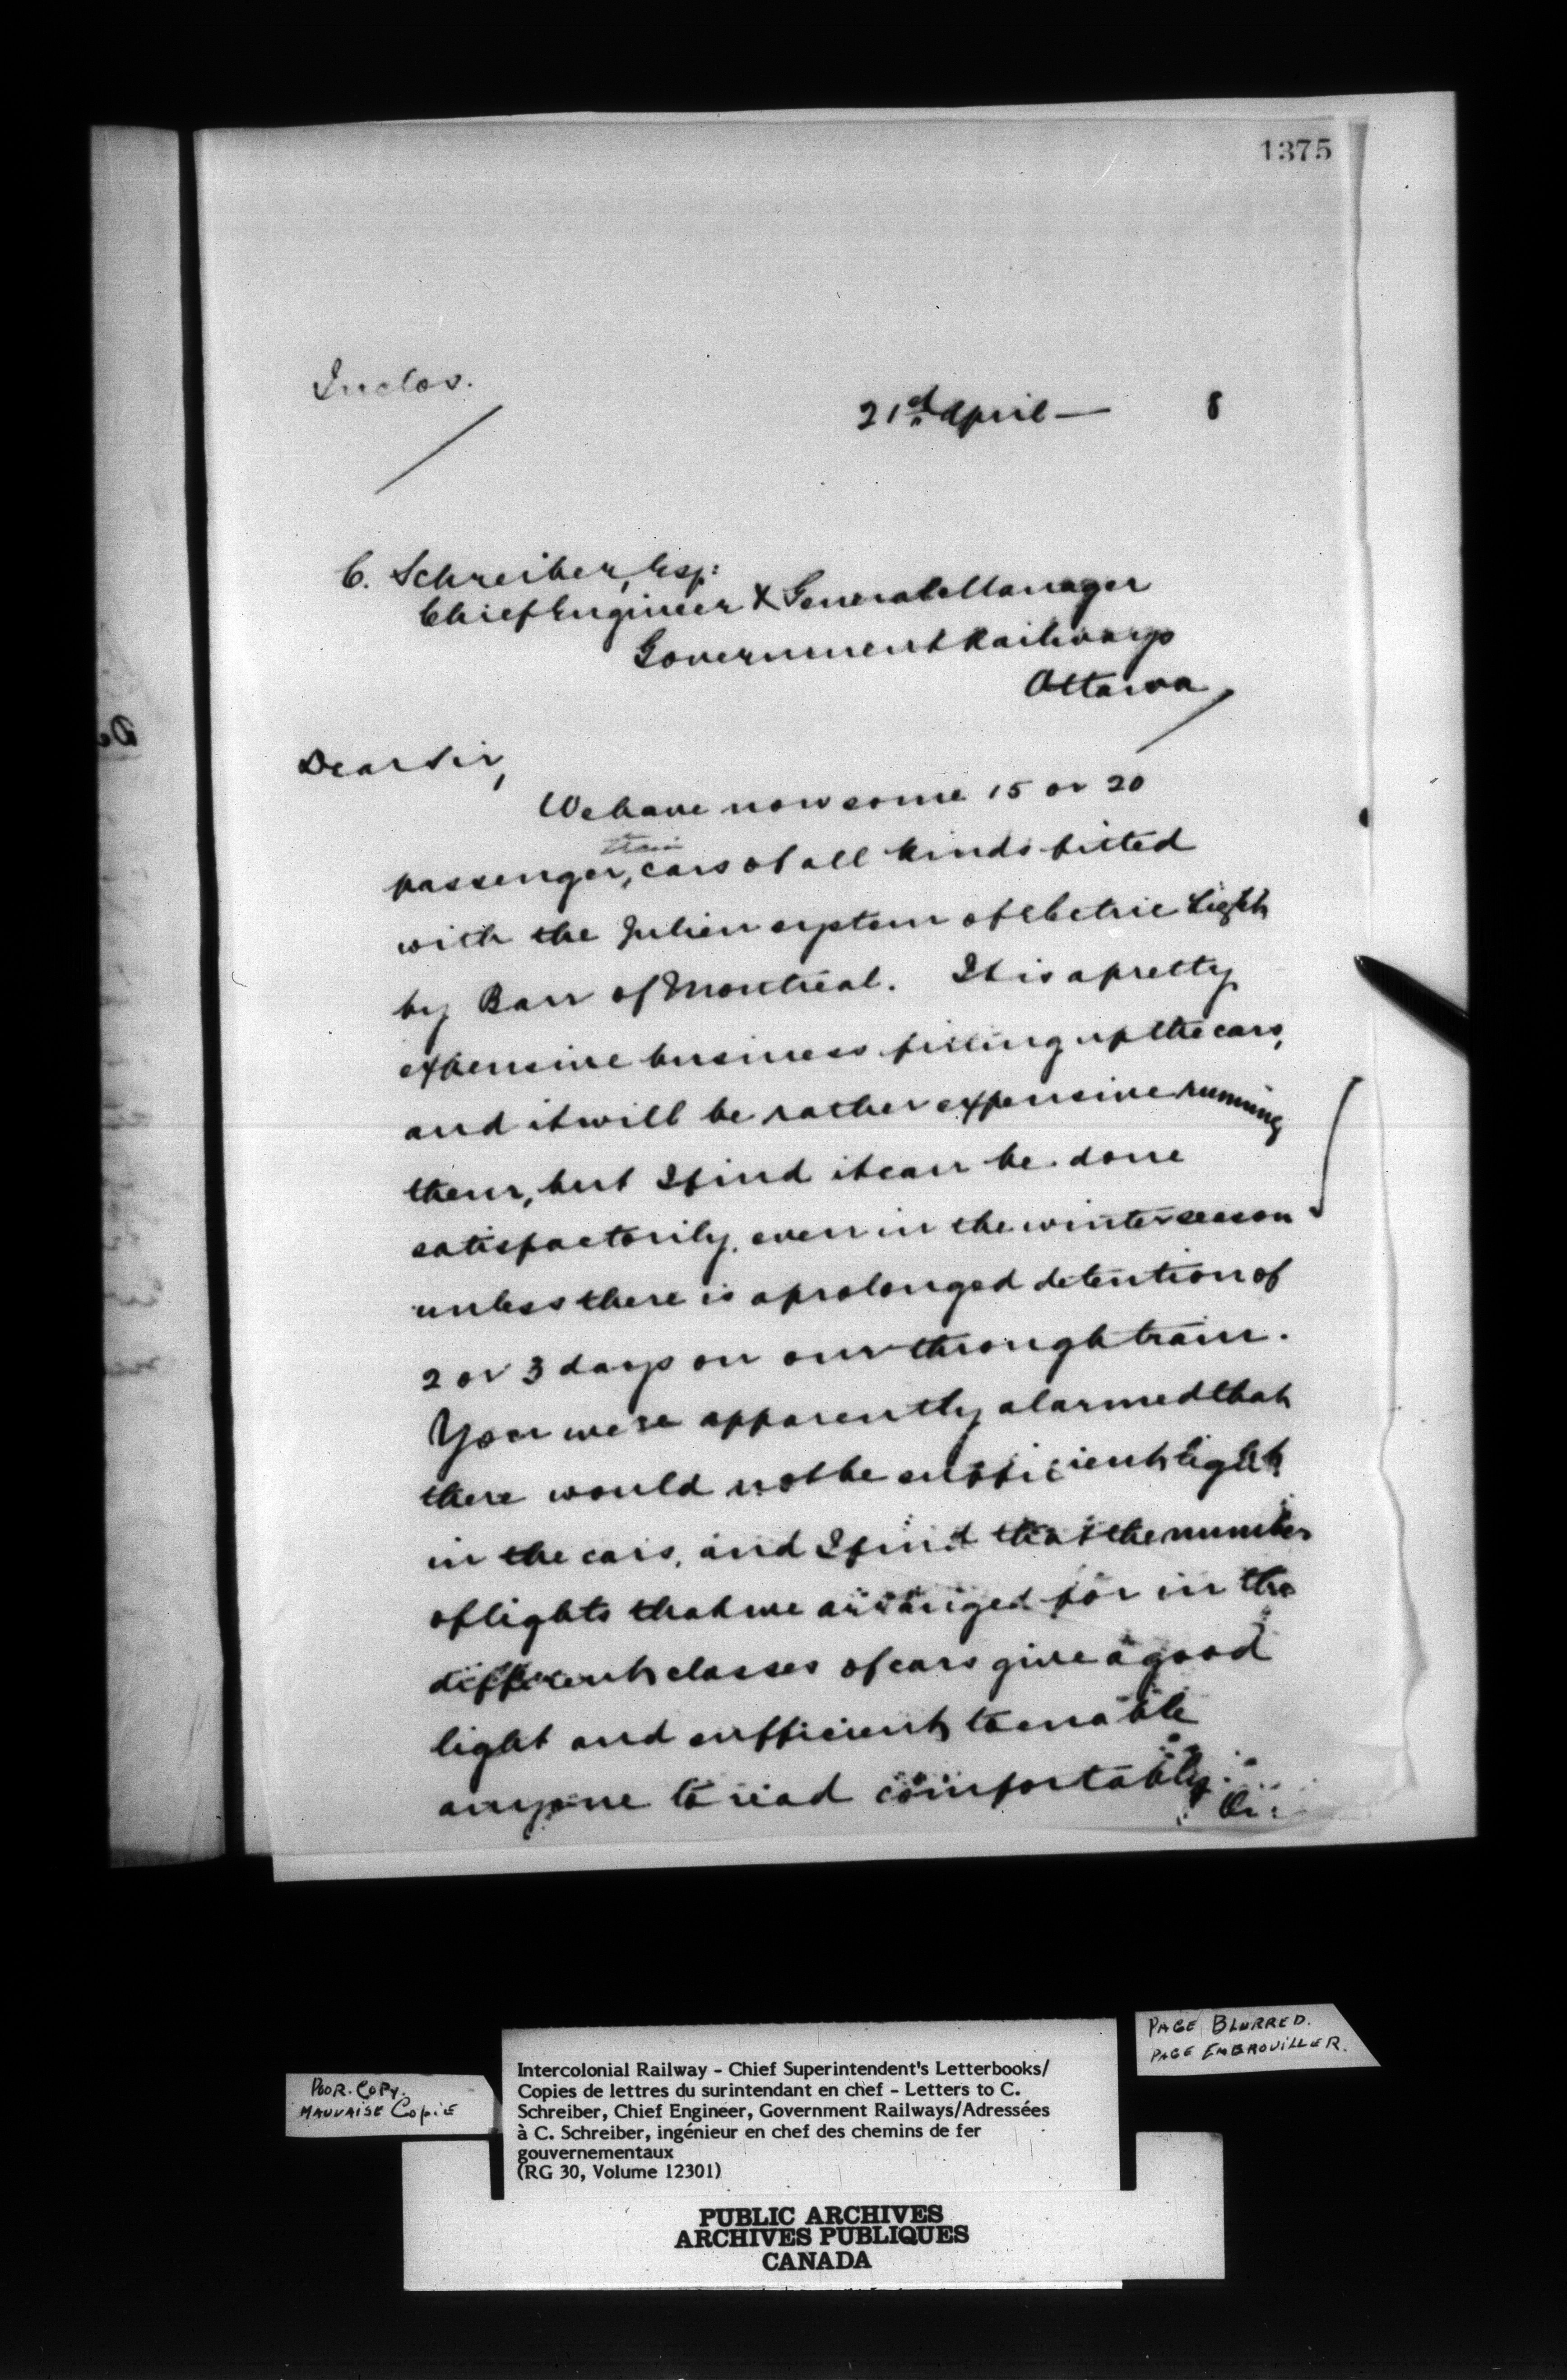 1375
Inclos.
21st April — 8
C. Schreiber, Esq:
Chief Engineer & General Manager
Government Railways
Ottawa
Dear Sir,
We have now some 15 or 20
train
passenger, cars of all kinds fitted
with the Julien system of Electric Light
by Barr of Montreal. It is a pretty
expensive business fitting up the cars,
and it will be rather expensive running
them, but I find it can be done
satisfactorily, even in the winter season
unless there is a prolonged detention of
2 or 3 days on our through train.
You were apparently alarmed that
there would not be sufficient light
in the cars, and I find that the number
of lights that we arranged for in the
different classes of cars give a good
light and sufficient to enable
anyone to read comfortably.
De
POOR. COPY.
MAUVAISE COPIE
PAGE BLURRED.
PAGE EMBROUILLER.
Intercolonial Railway - Chief Superintendent's Letterbooks/
Copies de lettres du surintendant en chef - Letters to C.
Schreiber, Chief Engineer, Government Railways/Adressées
à C. Schreiber, ingénieur en chef des chemins de fer
gouvernementaux
(RG 30, Volume 12301)
PUBLIC ARCHIVES
ARCHIVES PUBLIQUES
CANADA